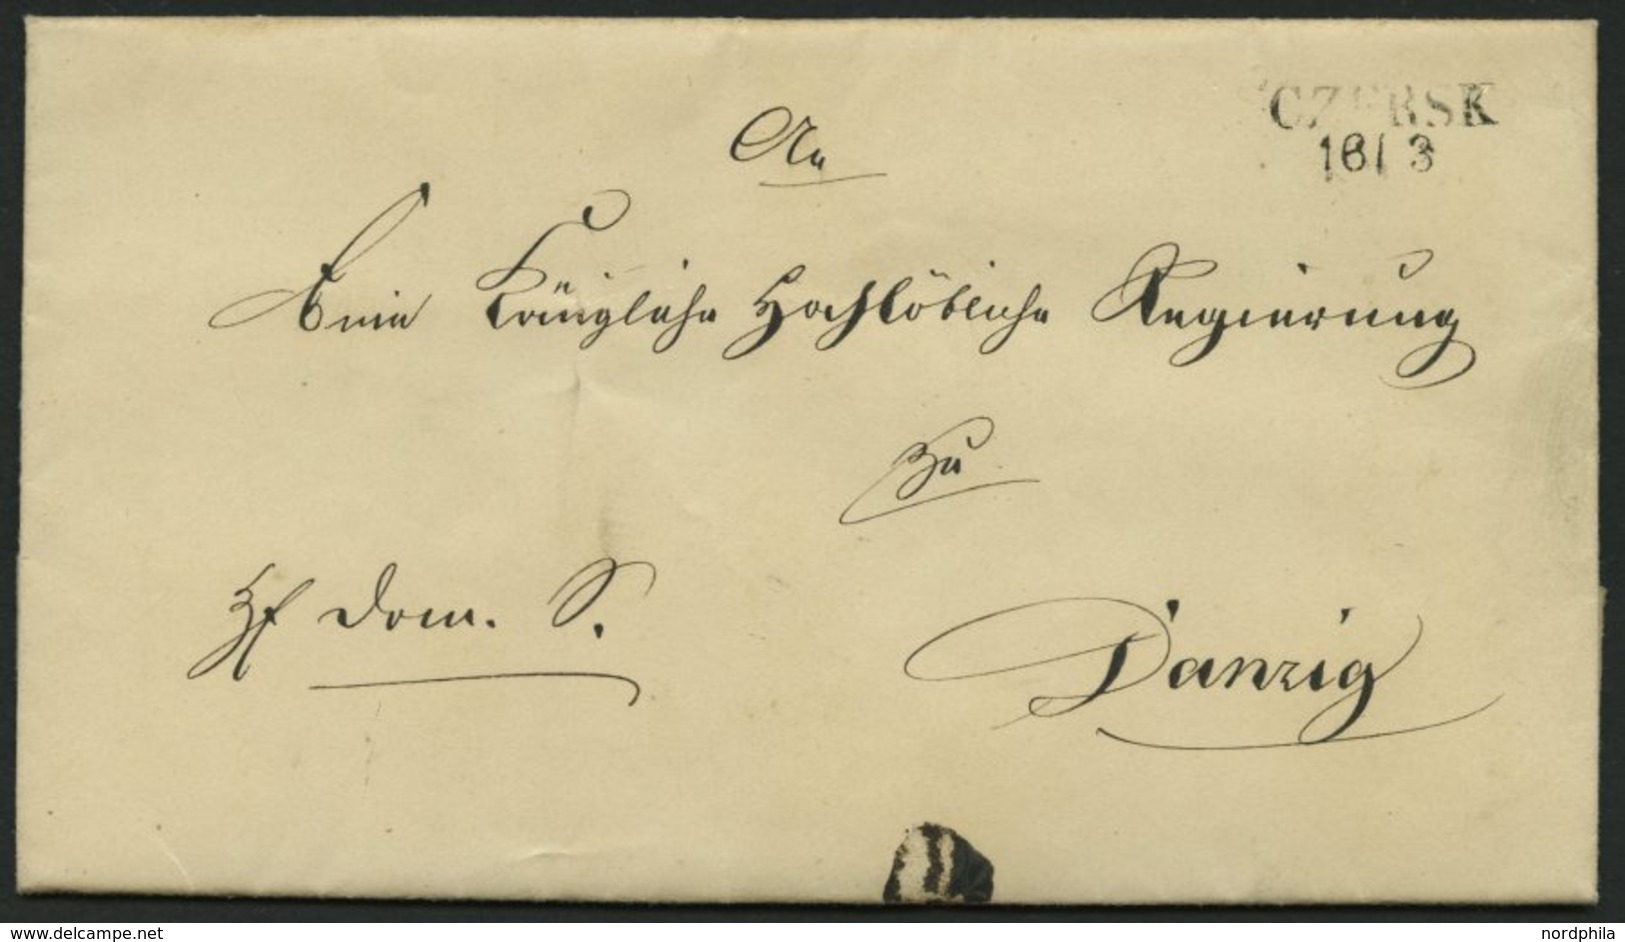 CZERSK
16/3
An
Eine Königliche Hochlöbliche Regierung
zu
Hf Dom. S.
Danzig
www.delcampe.net
nordphila